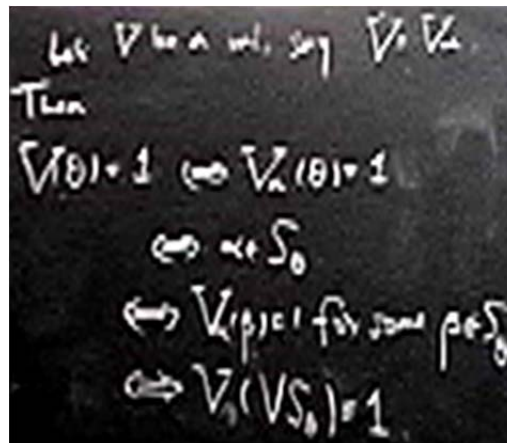 Let V be a val, say V = Vα.
Then
V(θ) = 1 ⇔ Vα(θ) = 1
⇔ α ∈ Sθ
⇔ Vα(β) = 1 for some β ∈ Sθ
⇔ V(VSθ) = 1